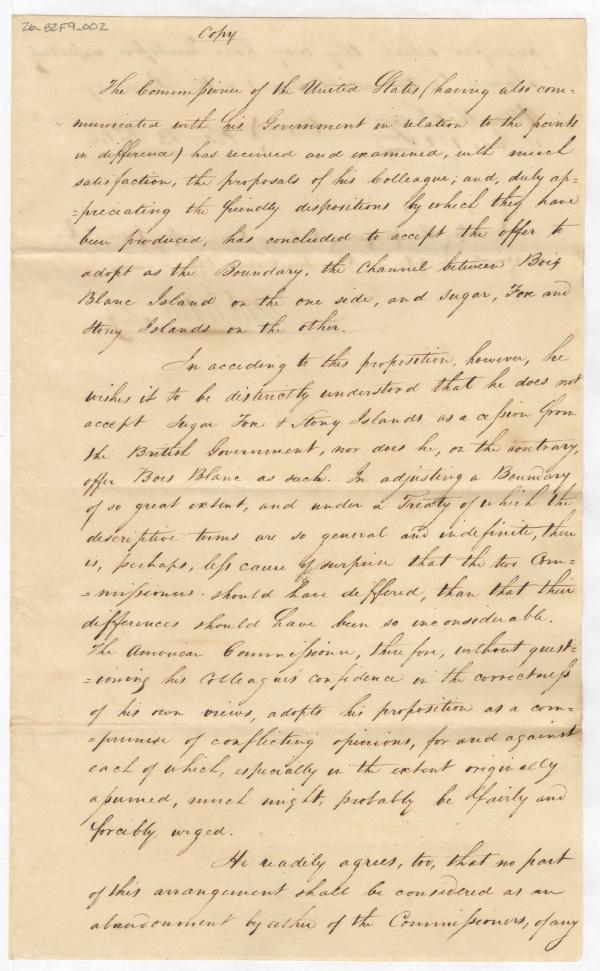 26-82F9-002
Copy
The Commissioner of the United States (having also com=
municated with his Government in relation to the points
in difference) has received and examined, with much
satisfaction, the proposals of his Colleague; and, duly ap=
=preciating the friendly dispositions by which they have
been produced, has concluded to accept the offer to
adopt as the Boundary, the Channel between Bois
Blanc Island on the one side, and Sugar, Fox and
Stony Islands on the other.
In acceding to this proposition, however, he
wishes it to be distinctly understood that he does not
accept Sugar Fox & Stony Islands as a cession from
the British Government, nor does he, on the contrary,
offer Bois Blanc as such. In adjusting a Boundary
of so great extent, and under a Treaty of which the
descriptive terms are so general and indefinite, there
is, perhaps, less cause of surprise that the two Com=
=missioners should have differed, than that their
differences should have been so inconsiderable.
The American Commissioner, therefore, without quest=
=ioning his Colleagues confidence in the correctness
of his own views, adopts his proposition as a com=
=promise of conflicting opinions, for and against
each of which, especially in the extent originally
assumed, much might, probably be fairly and
forcibly urged.
He readily agrees, too, that no part
of this arrangement shall be considered as an
abandonment by either of the Commissioners, of any